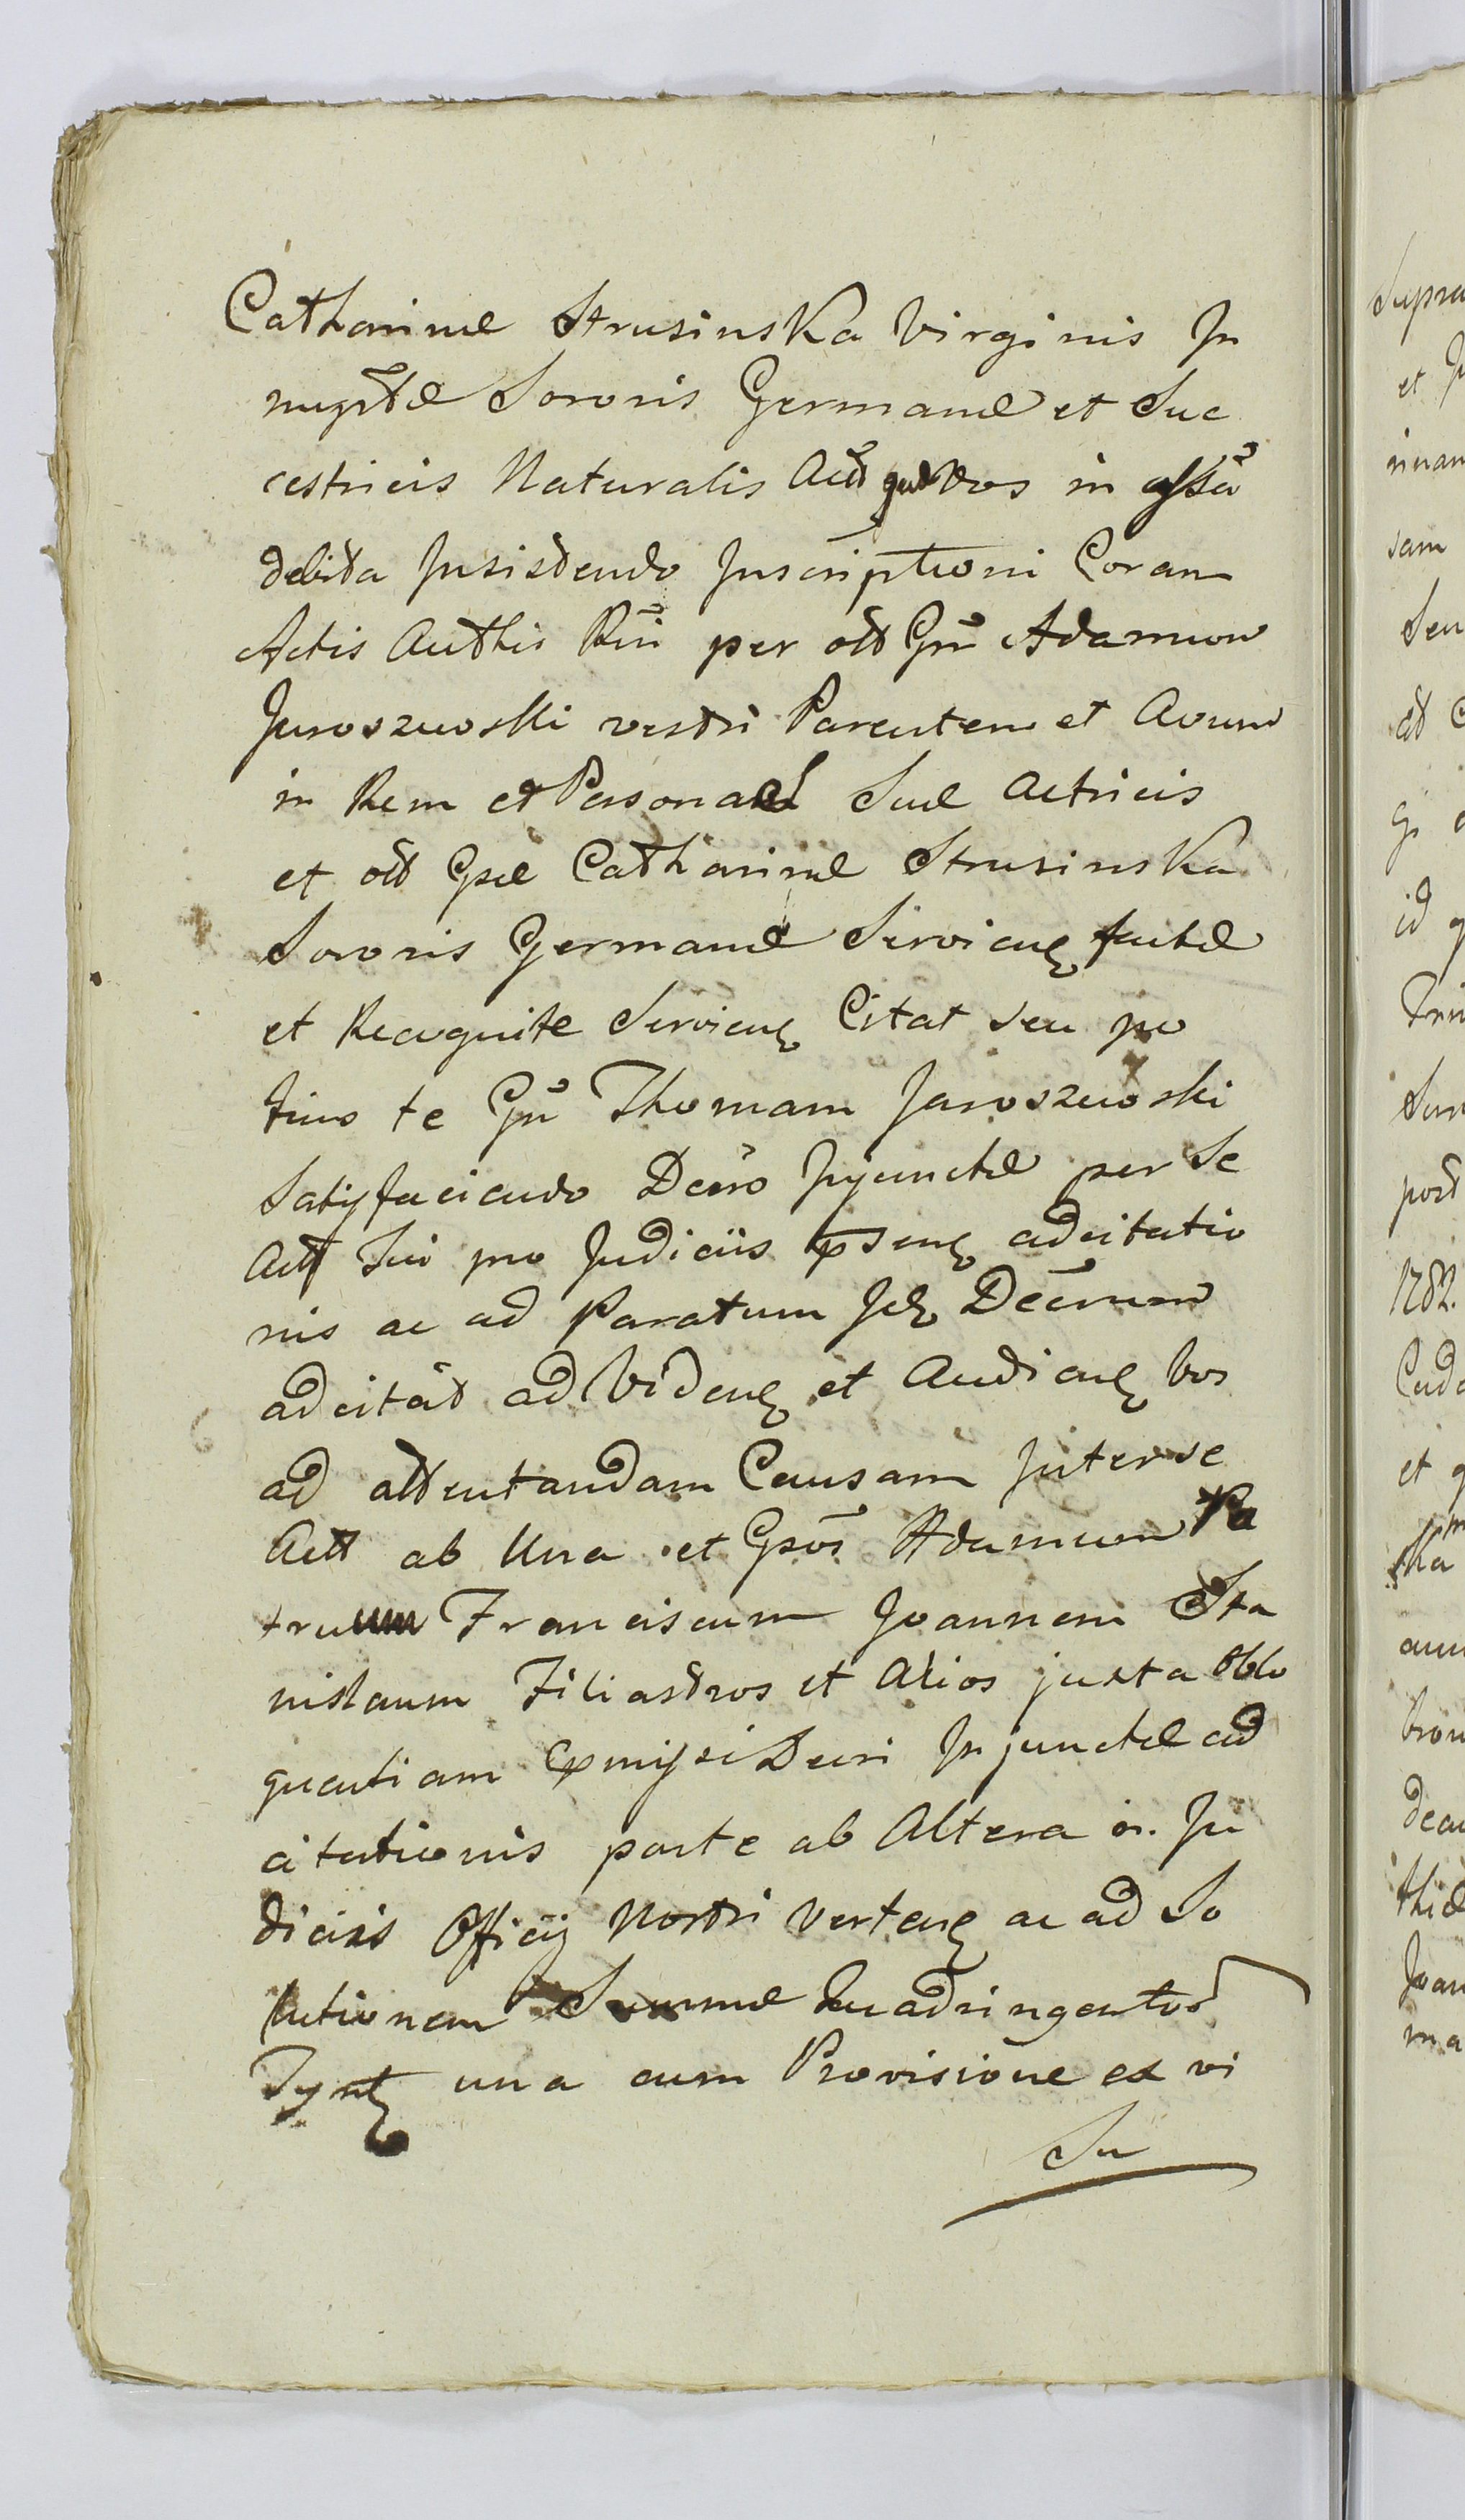 Catharinæ Strusinska Virginis In
nuptæ Sororis Germanæ et Suc
cestricis Naturalis Actt vos in assa
debita Insistendo Inscriptioni Coram
Actis Authis Rñi per olt Gñ Adamum
Jaroszewski vestri Parentem et Avum
in Rem et Personas Suæ Actricis
et olt Gsæ Catharinæ Strusinska
Sororis Germanæ Servieng factæ
et Recognitæ Servieng Citat seu po
tius te Gñ Thomam Jaroszewski
Satisfaciendo Decro Injunctæ per Se
Actt Sui pro Judiciis pseng adcitatio
nis ac ad Paratum Decrum
adcitat ad Videng et Audieng vos
ad attentandam Causam Inter se
Actt ab Una et Gsos Adamum Pa
truum Franciscum Joannem Sta
nislaum Filiastros et Alios juxta Oblo
quentiam Decri Injunctæ ad
citationis parte ab Altera in Ju
diciis Officij Nostri Verteng ac ad So
lutionem Summæ Quadringentos
Tynf una cum Provisione ex vi
Su
Supra
et
rinam
sam
Seu
id q
post
1782.
et q
ska
Joan
ma